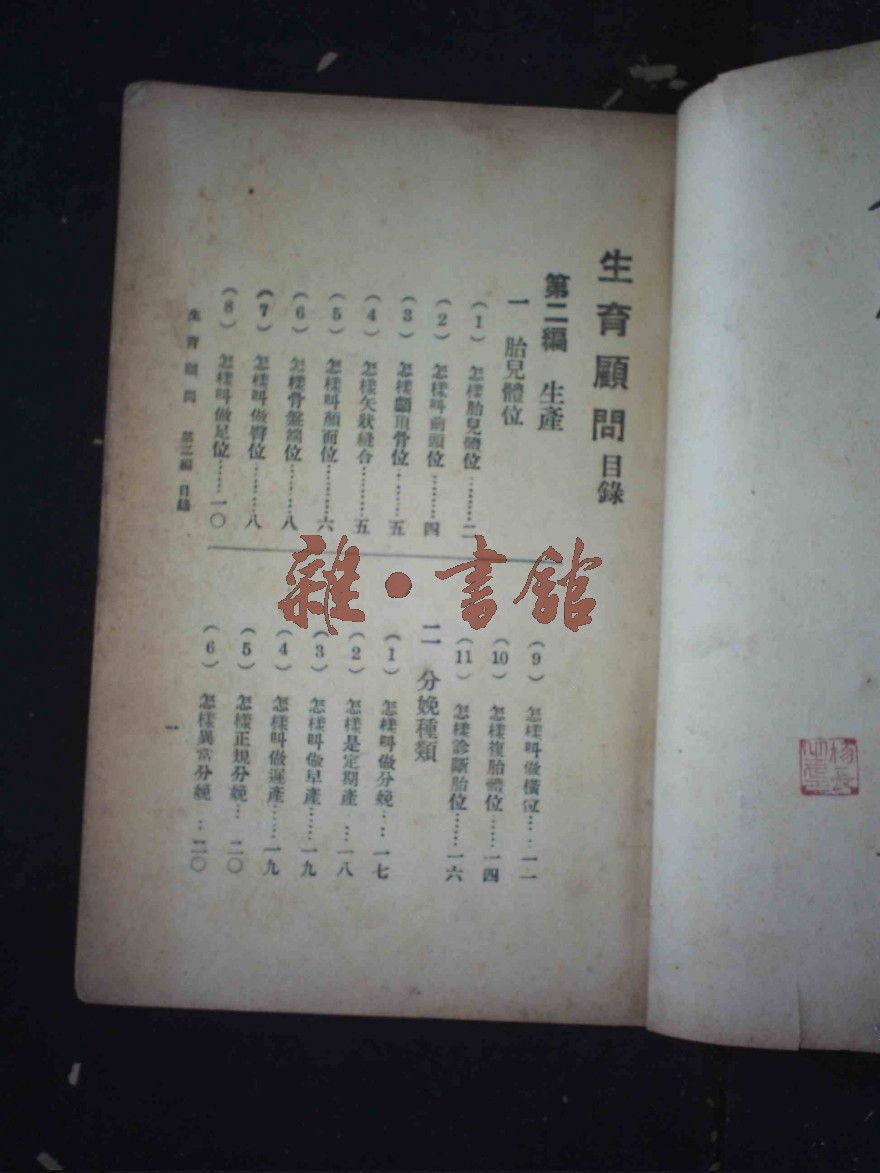 生育顧問目錄
第二編 生產
一 胎兒體位
(1) 怎樣胎兒體位………二
(2) 怎樣叫前頭位………四
(3) 怎樣顱頂骨位………五
(4) 怎樣矢狀縫合………五
(5) 怎樣叫顏面位………六
(6) 怎樣骨盤端位………八
(7) 怎樣叫做臀位………八
(8) 怎樣叫做足位……一〇
(9) 怎樣叫做橫位……一一
(10) 怎樣複胎體位……一四
(11) 怎樣診斷胎位……一六
二 分娩種類
(1) 怎樣叫做分娩……一七
(2) 怎樣是定期產…一八
(3) 怎樣叫做早產……一九
(4) 怎樣叫做遲產……一九
(5) 怎樣正規分娩…二〇
(6) 怎樣異常分娩…二〇
生育顧問 第二編 目錄
一
雜·書館